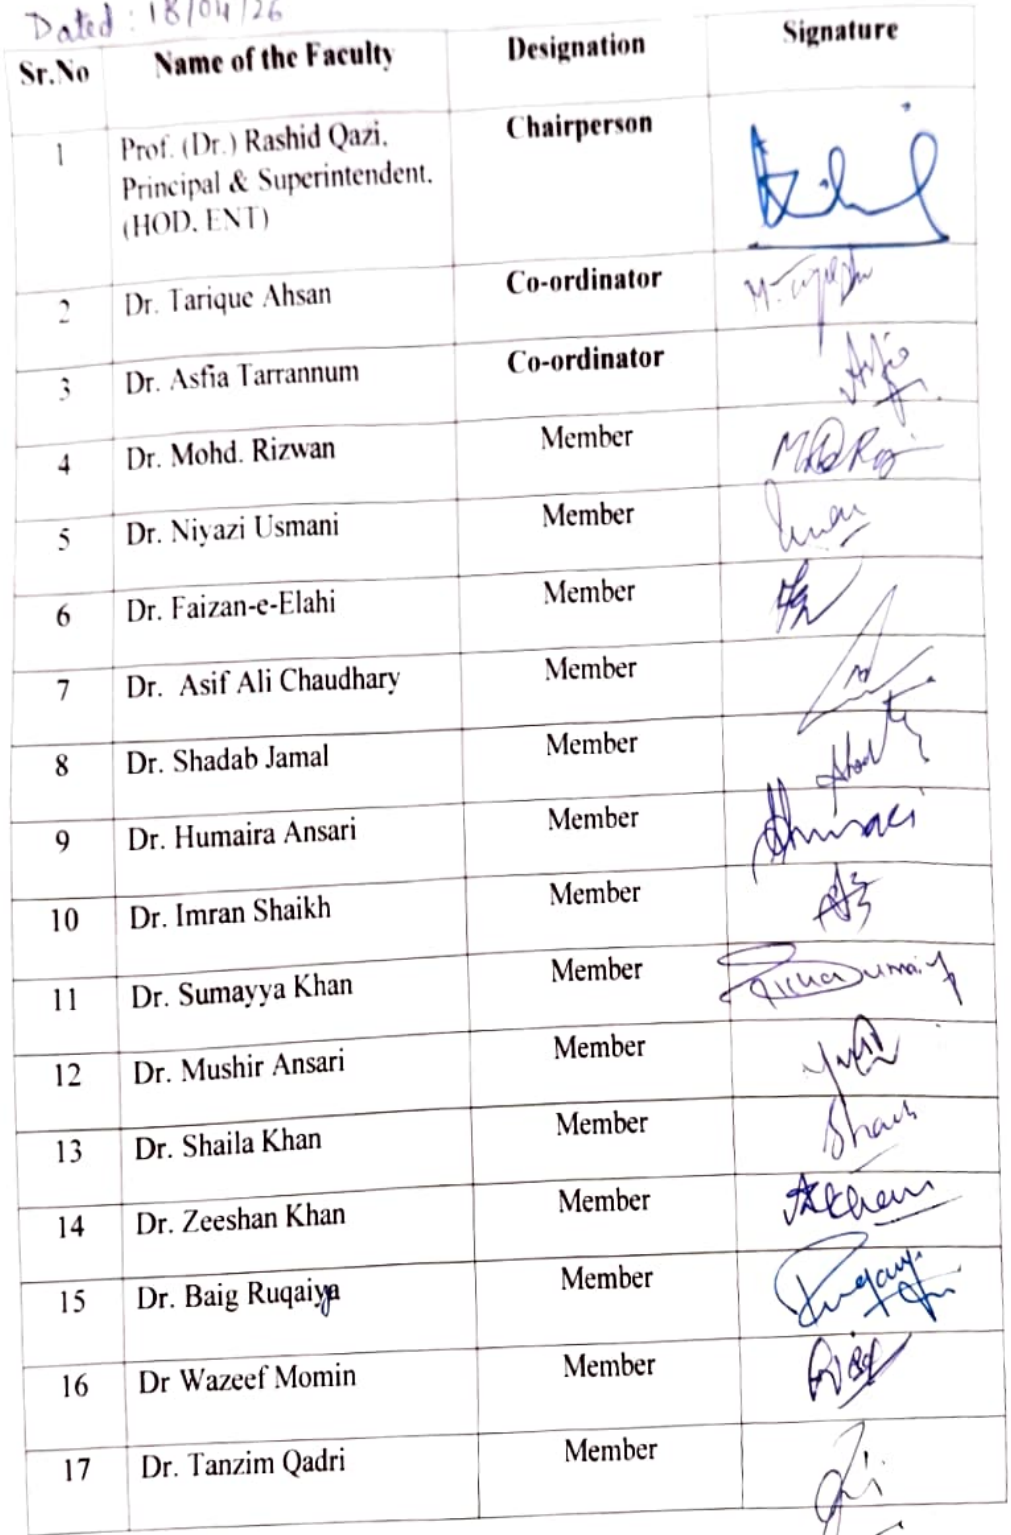 Dated : 18/04/26
Sr.No Name of the Faculty Designation Signature
1 Prof. (Dr.) Rashid Qazi, Chairperson
Principal & Superintendent.
(HOD, ENT)
2 Dr. Tarique Ahsan Co-ordinator
3 Dr. Asfia Tarrannum Co-ordinator
4 Dr. Mohd. Rizwan Member
5 Dr. Niyazi Usmani Member
6 Dr. Faizan-e-Elahi Member
7 Dr. Asif Ali Chaudhary Member
8 Dr. Shadab Jamal Member
9 Dr. Humaira Ansari Member
10 Dr. Imran Shaikh Member
11 Dr. Sumayya Khan Member
12 Dr. Mushir Ansari Member
13 Dr. Shaila Khan Member
14 Dr. Zeeshan Khan Member
15 Dr. Baig Ruqaiya Member
16 Dr Wazeef Momin Member
17 Dr. Tanzim Qadri Member